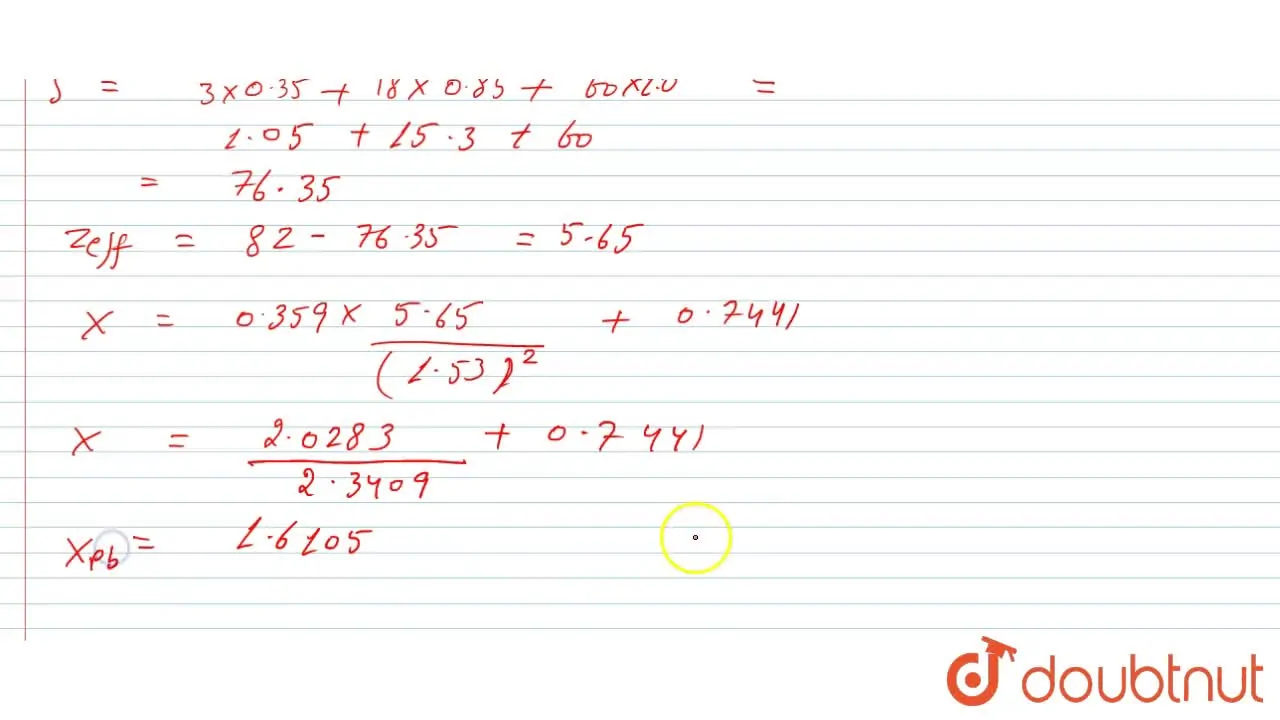 S = 3 x 0.35 + 18 x 0.85 + 60 x 1.0 =
1.05 + 15.3 + 60
= 76.35
Zeff = 82 - 76.35 = 5.65
X = 0.359 x 5.65 / (1.53)² + 0.7441
X = 2.0283 / 2.3409 + 0.7441
XPb = 1.6105
doubtnut